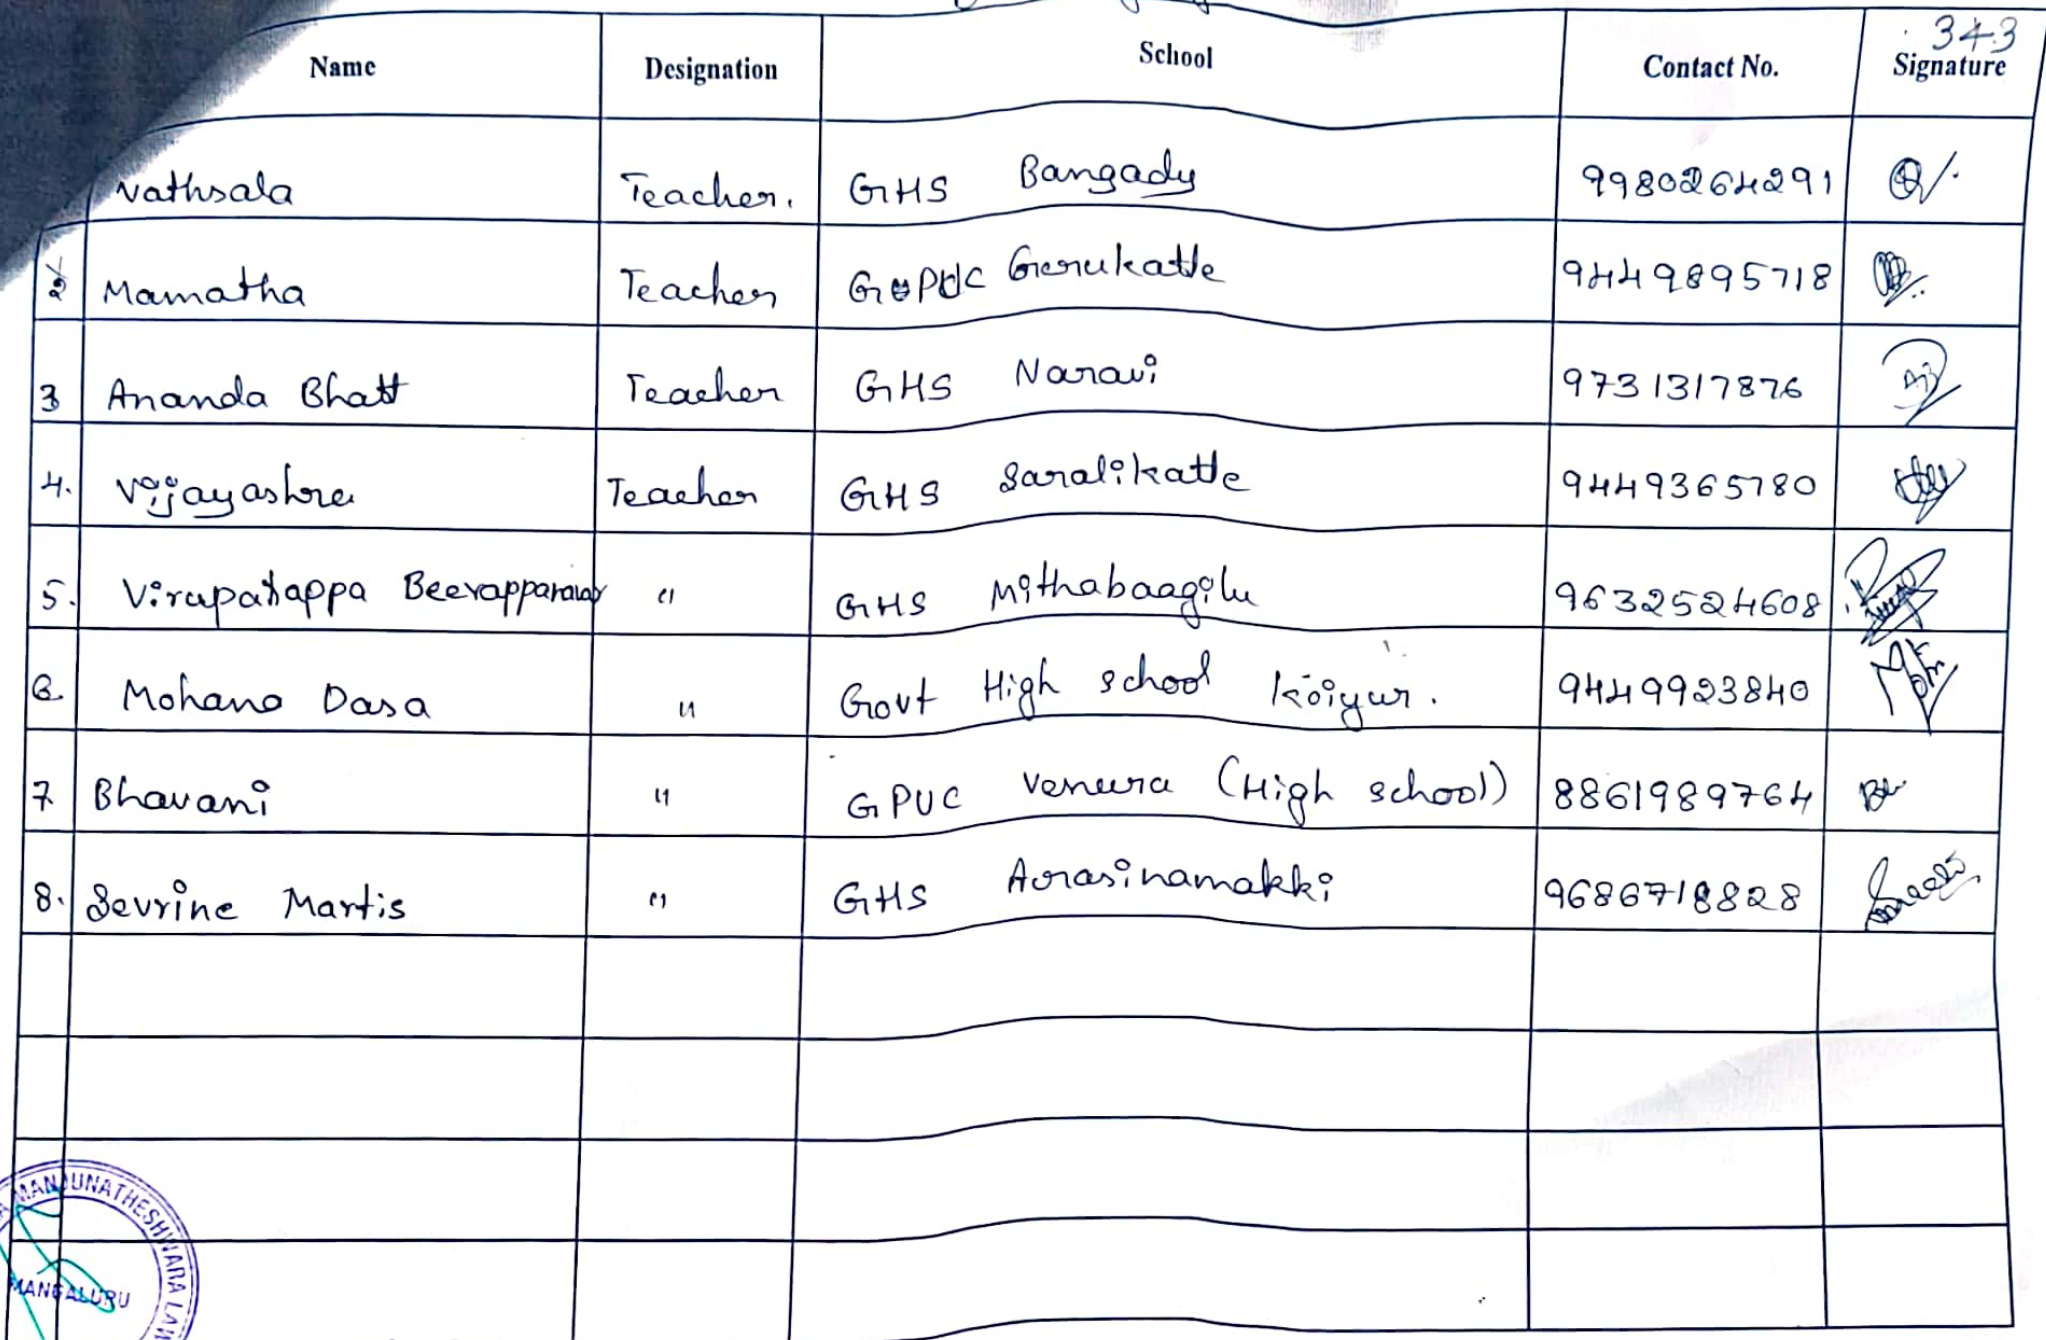 343
Name Designation School Contact No. Signature
Vathsala Teacher. GHS Bangady 9980264291
2 Mamatha Teacher GPUC Gerukatte 9449895718
3 Ananda Bhatt Teacher GHS Naravi 9731317876
4. Vijayashree Teacher GHS Saralikatte 9449365780
5. Virupakappa Beerapparawar " GHS Mithabaagilu 9632524608
6. Mohana Dasa " Govt High school Koiyur. 9449923840
7. Bhavani " GPUC Venura (High school) 8861989764
8. Sevrine Martis " GHS Arasinamakki 9686718828
MANJUNATHESHWARA LAW
MANGALURU